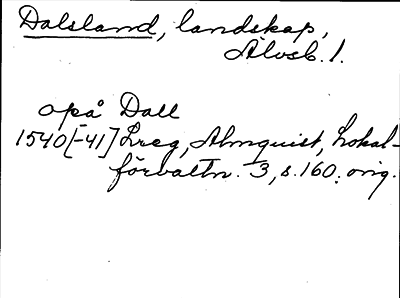 Dalsland, landskap,
Älvsb. l.
opå Dall
1540[-41] Lreg, Almquist, Lokal-
förvaltn. 3, s. 160; orig.